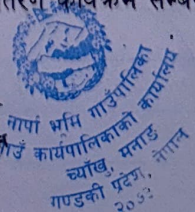 कार्यक्रम
नार्पा भूमि गाउँपालिका
गाउँ कार्यपालिकाको कार्यालय
च्याँखु, मनाङ
गण्डकी प्रदेश, नेपाल
२०७३